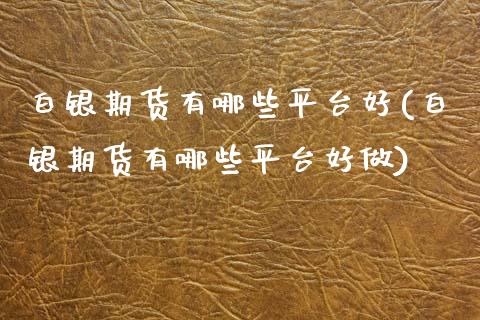 白银期货有哪些平台好(白
银期货有哪些平台好做)